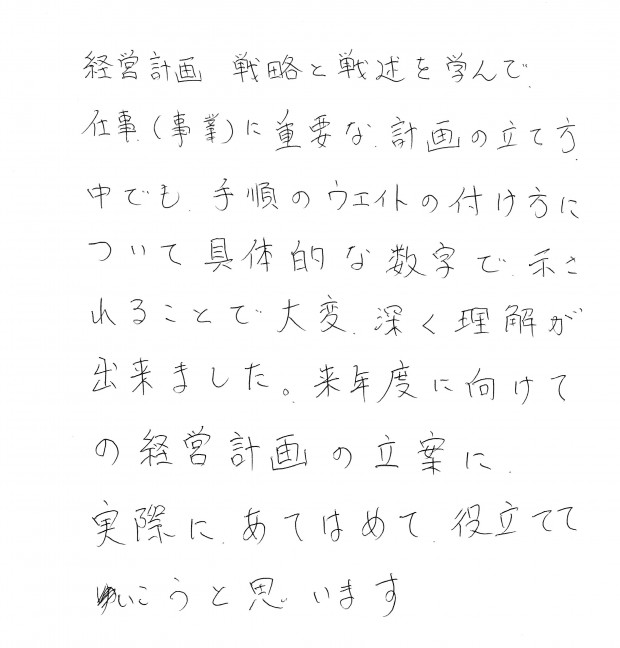 経営計画 戦略と戦述を学んで
仕事(事業)に重要な計画の立て方
中でも、手順のウエイトの付け方に
ついて具体的な数字で、示さ
れることで大変、深く理解が
出来ました。来年度に向けて
の経営計画の立案に、
実際に、あてはめて、役立てて
いこうと思います